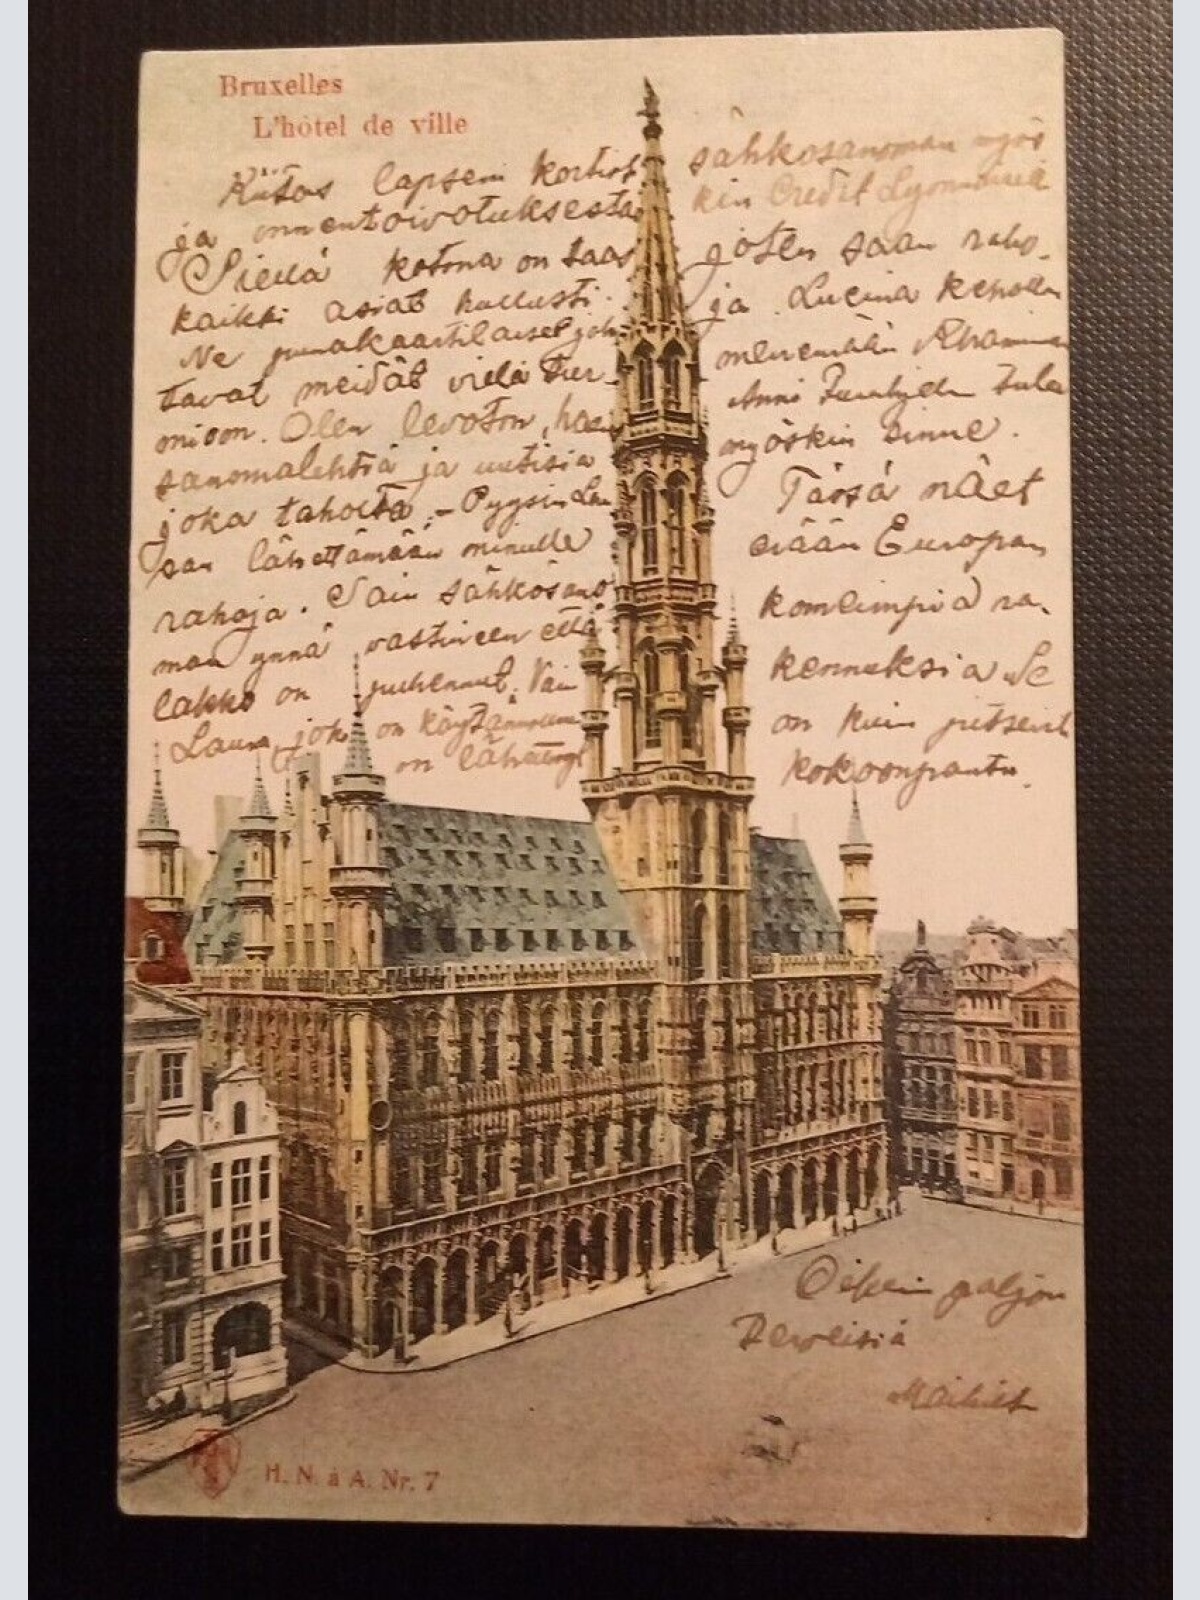 Bruxelles
L'hôtel de ville
Kiitos lapseni kortist
ja onnentoivotuksesta
Siellä kotona on taas
kaikki asiat hullusti.
Ne punakaartilaiset joh-
tavat meidät vielä tur-
mioon. Olen levoton, haen
sanomalehtiä ja uutisia
joka taholta. - Pyysin Lau
san lähettämään minulle
rahoja. Sain sähkösano
man ynnä vastineen että
lakko on puhennut. Vain
Laura, joka on
on lähettänyt
sähkosanoman myös
kin Credit Lyonnaisiä
joten saan raho-
ja. Lucina
Anni tulee
myöskin sinne.
Tässä näet
erään Europan
komeimpia ra-
kennuksia. Se
on kuin pitseist
kokoonpantu.
Oikein paljon
Terveisiä
H. N. à A. Nr. 7